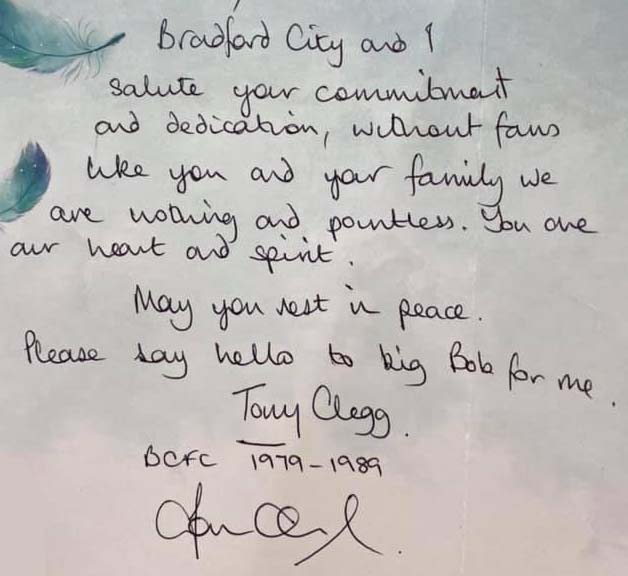 Bradford City and I
salute your commitment
and dedication, without fans
like you and your family we
are nothing and pointless. You are
our heart and spirit.
May you rest in peace.
Please say hello to big Bob for me.
Tony Clegg.
BCFC 1979-1989